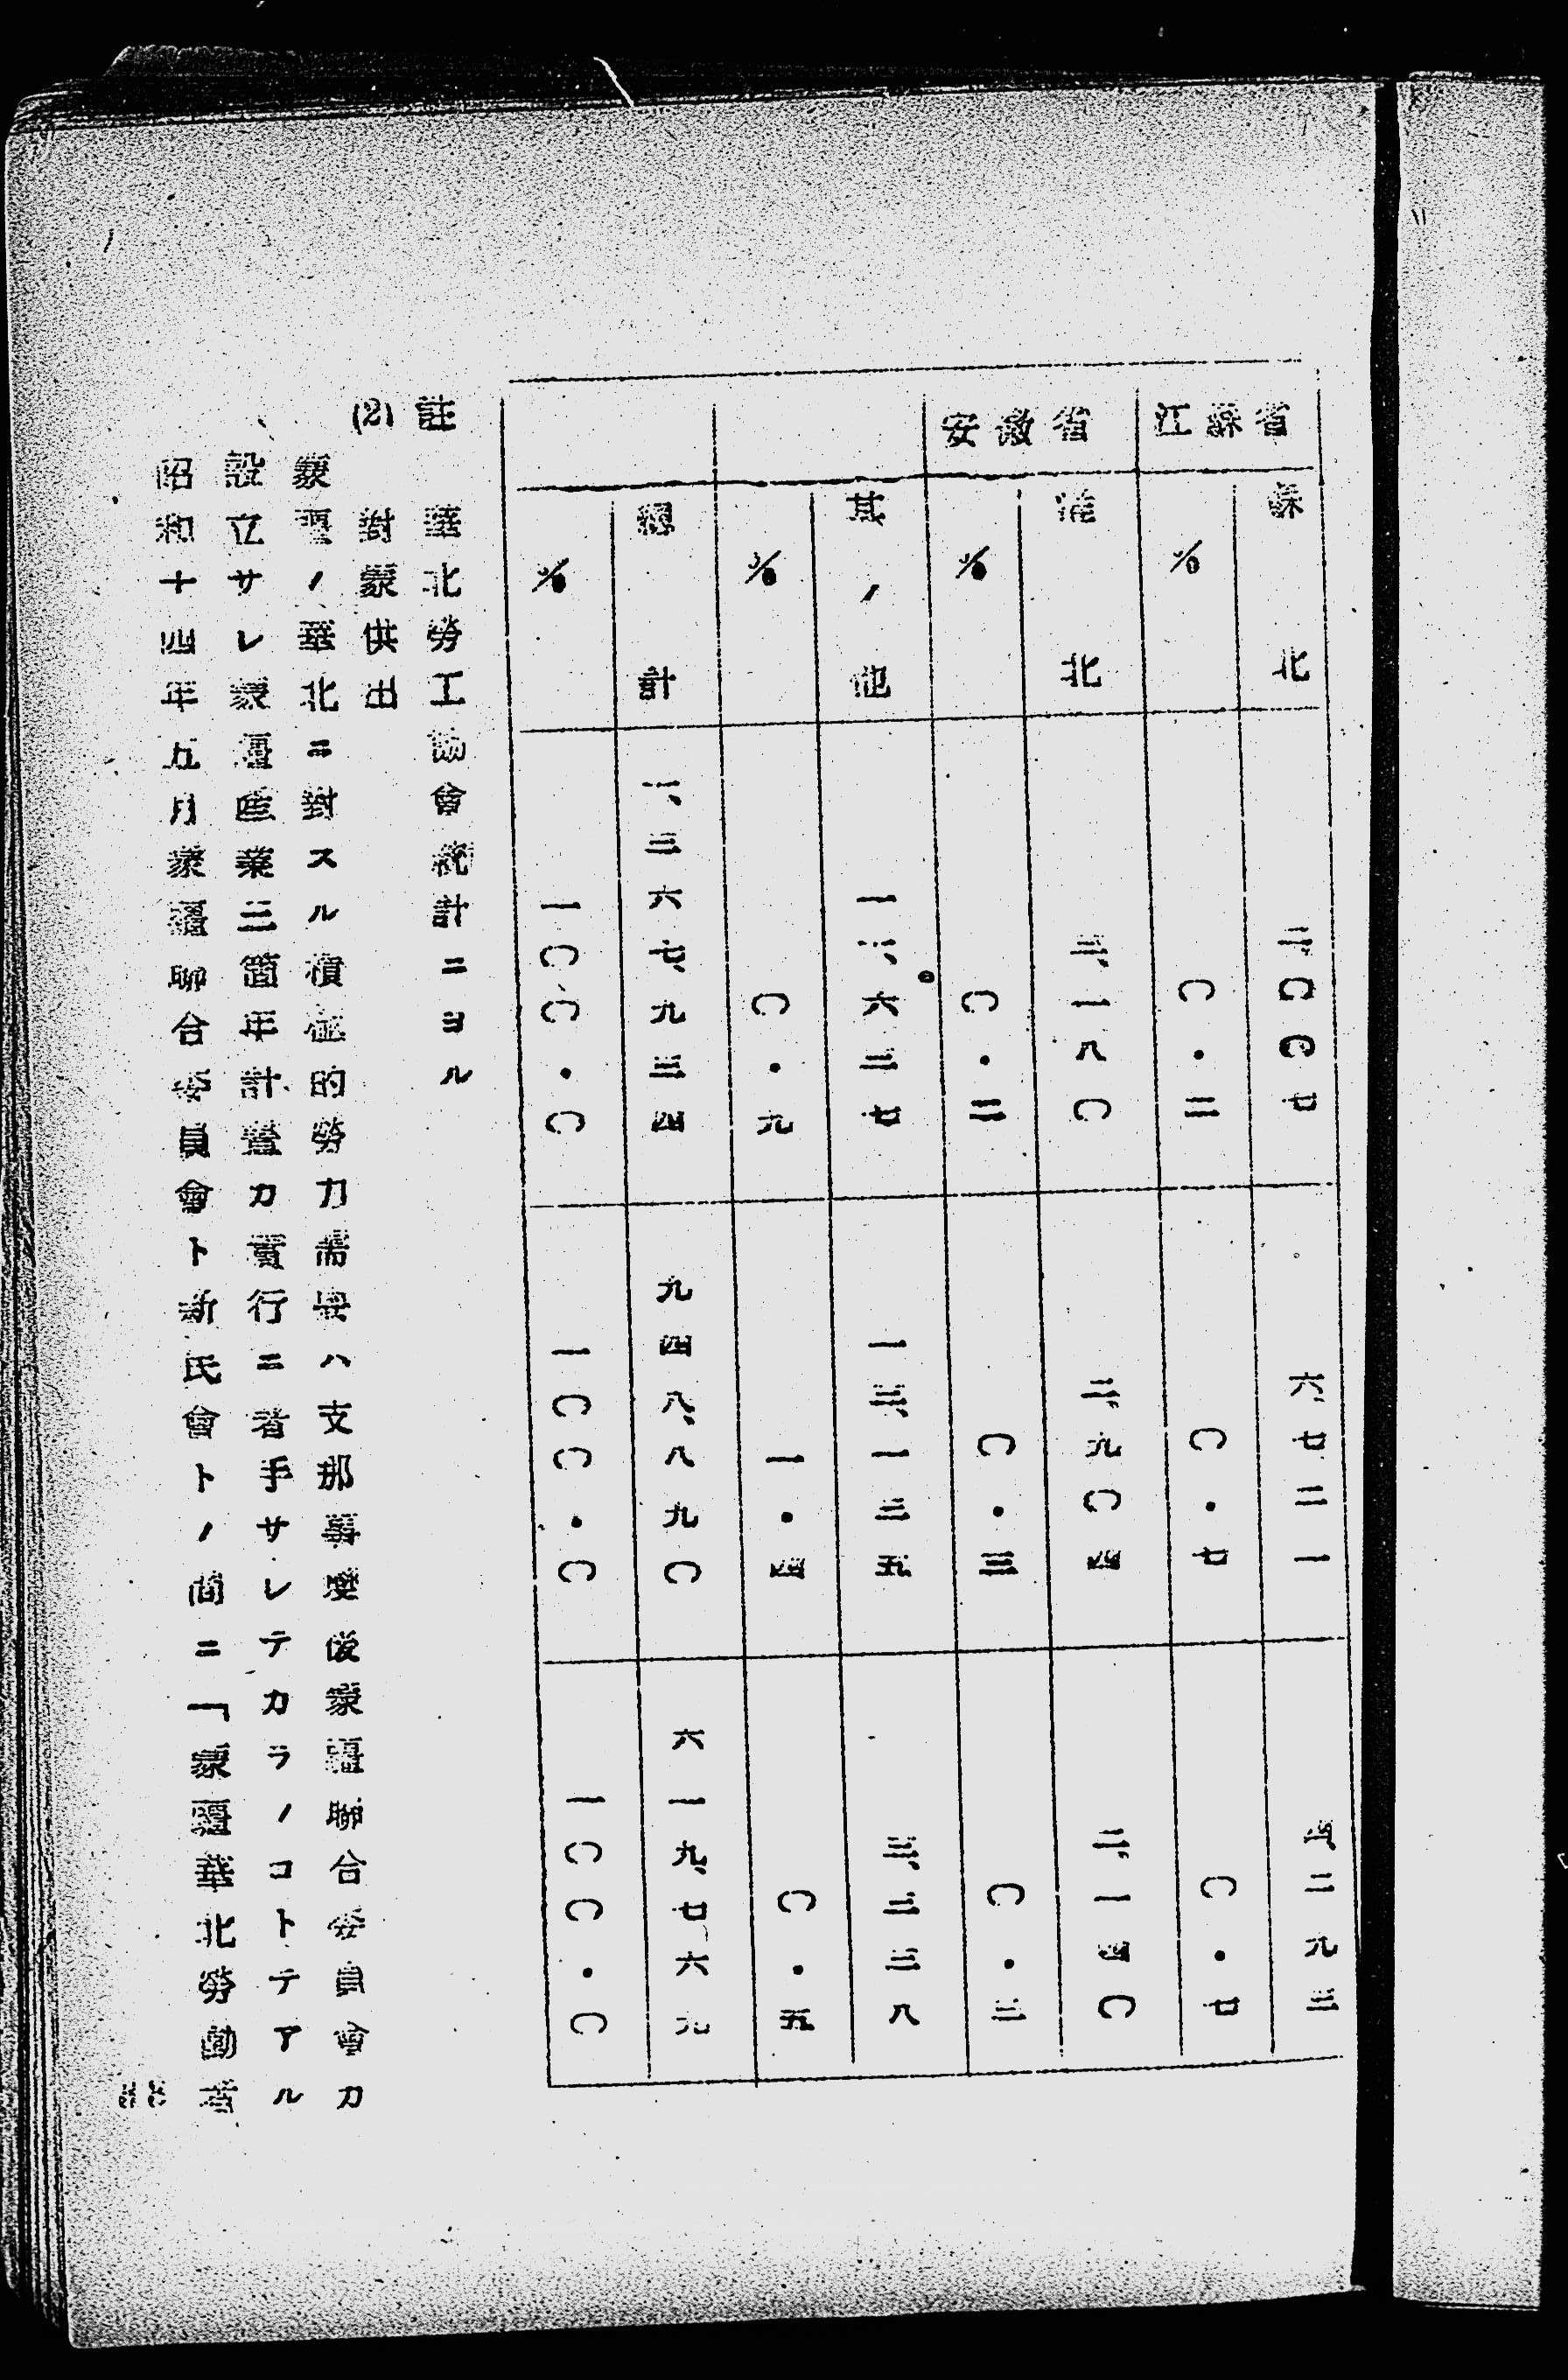 江蘇省 蘇北 二、〇〇七 六、七二一 四、二九三
% 〇・二 〇・七 〇・七
安徽省 淮北 三、一八〇 二、九〇四 二、一四〇
% 〇・二 〇・三 〇・三
其ノ他 一二、六三七 一三、一三五 三、三三八
% 〇・九 一・四 〇・五
總計 一、三六七、九三四 九四八、八九〇 六一九、七六九
% 一〇〇・〇 一〇〇・〇 一〇〇・〇
註 華北勞工協會統計ニヨル
(2) 對蒙供出
蒙疆ノ華北ニ對スル積極的勞力需要ハ支那事變後蒙疆聯合委員會カ
設立サレ蒙疆産業三箇年計畫カ實行ニ着手サレテカラノコトテアル
昭和十四年五月蒙疆聯合委員會ト新民會トノ間ニ「蒙疆華北勞動者